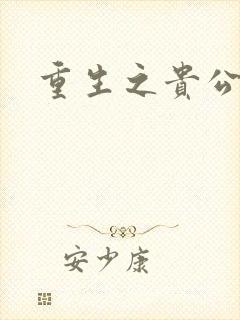 重生之貴公
安少康